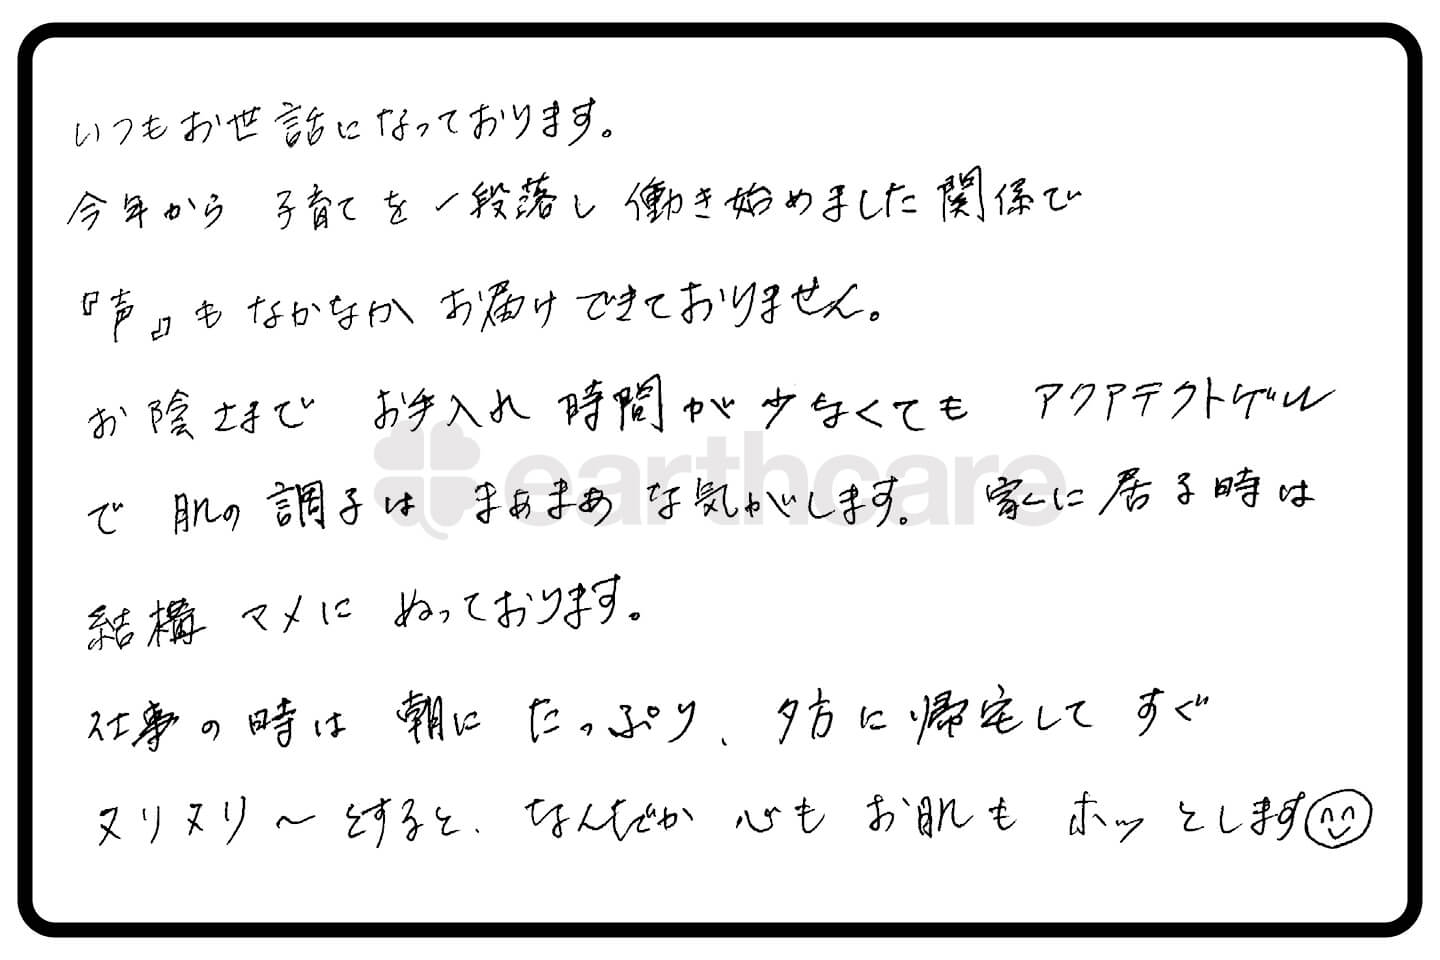 いつもお世話になっております。
今年から 子育てを一段落し 働き始めました関係で
『声』も なかなか お届けできておりません。
お陰さまで お手入れ 時間が 少なくても アクアテクトゲル
earthcare
で 肌の調子は まぁまぁ な気がします。 家に居る時は
結構 マメに ぬっております。
仕事の時は 朝に たっぷり、夕方に帰宅して すぐ
ヌリヌリ〜とすると、なんだか 心も お肌も ホッとします